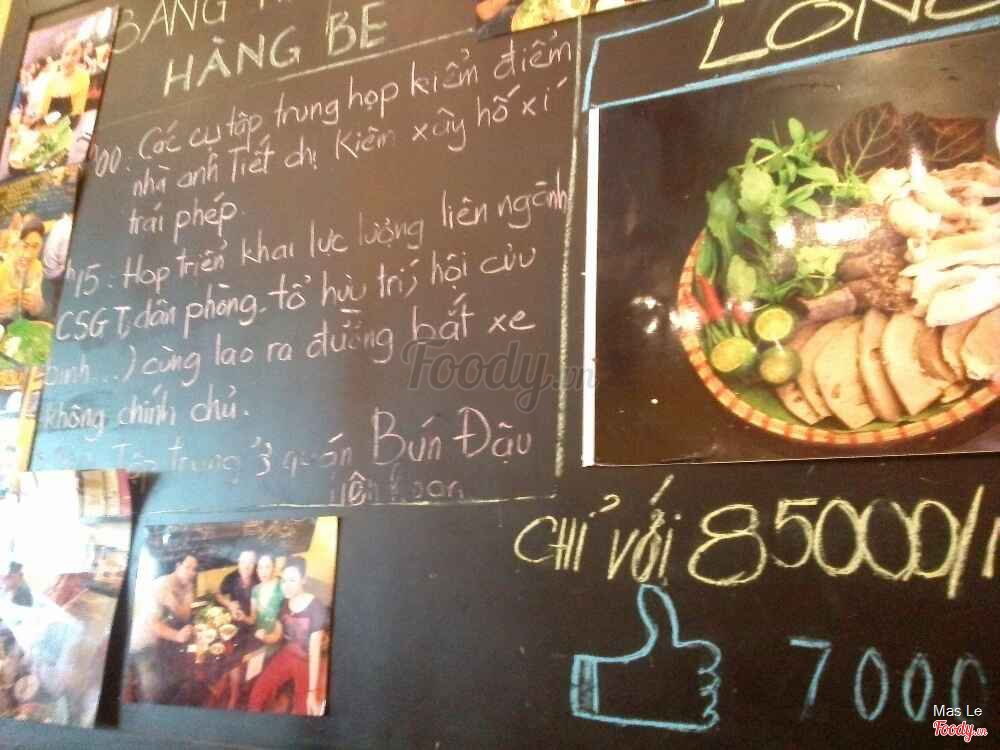 HÀNG BE
LONG
00: Các cụ tập trung họp kiểm điểm
nhà anh Tiết chị Kiêm xây hố xí
trái phép.
15: Họp triển khai lực lượng liên ngành
CSGT, dân phòng, tổ hưu trí, hội cựu
binh...) cùng lao ra đường bắt xe
không chính chủ.
Tập trung ở quán Bún Đậu
liên hoan
CHỈ VỚI 85000/
7000
Foody.vn
Mas Le
Foody.vn